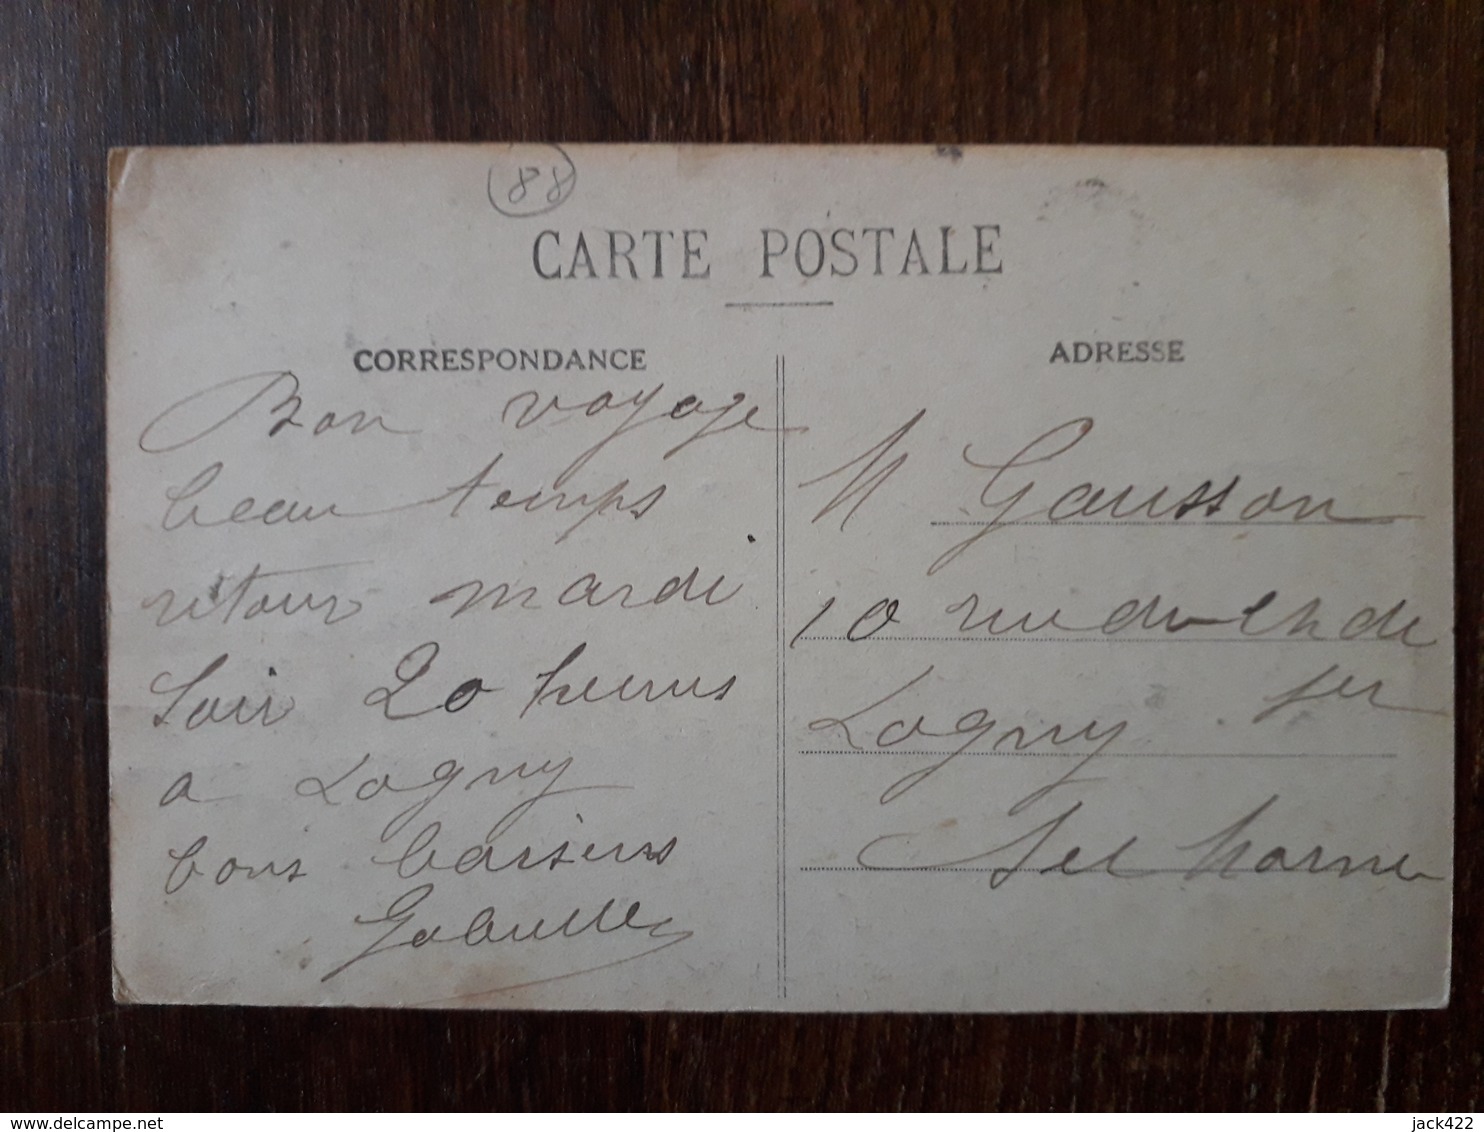 88
CARTE POSTALE
CORRESPONDANCE
Bon voyage
beau temps
retour mardi
soir 20 heures
a Lagny
bons baisers
Gabrielle
ADRESSE
M Gausson
10 rue du
Lagny sur
Marne
jack422